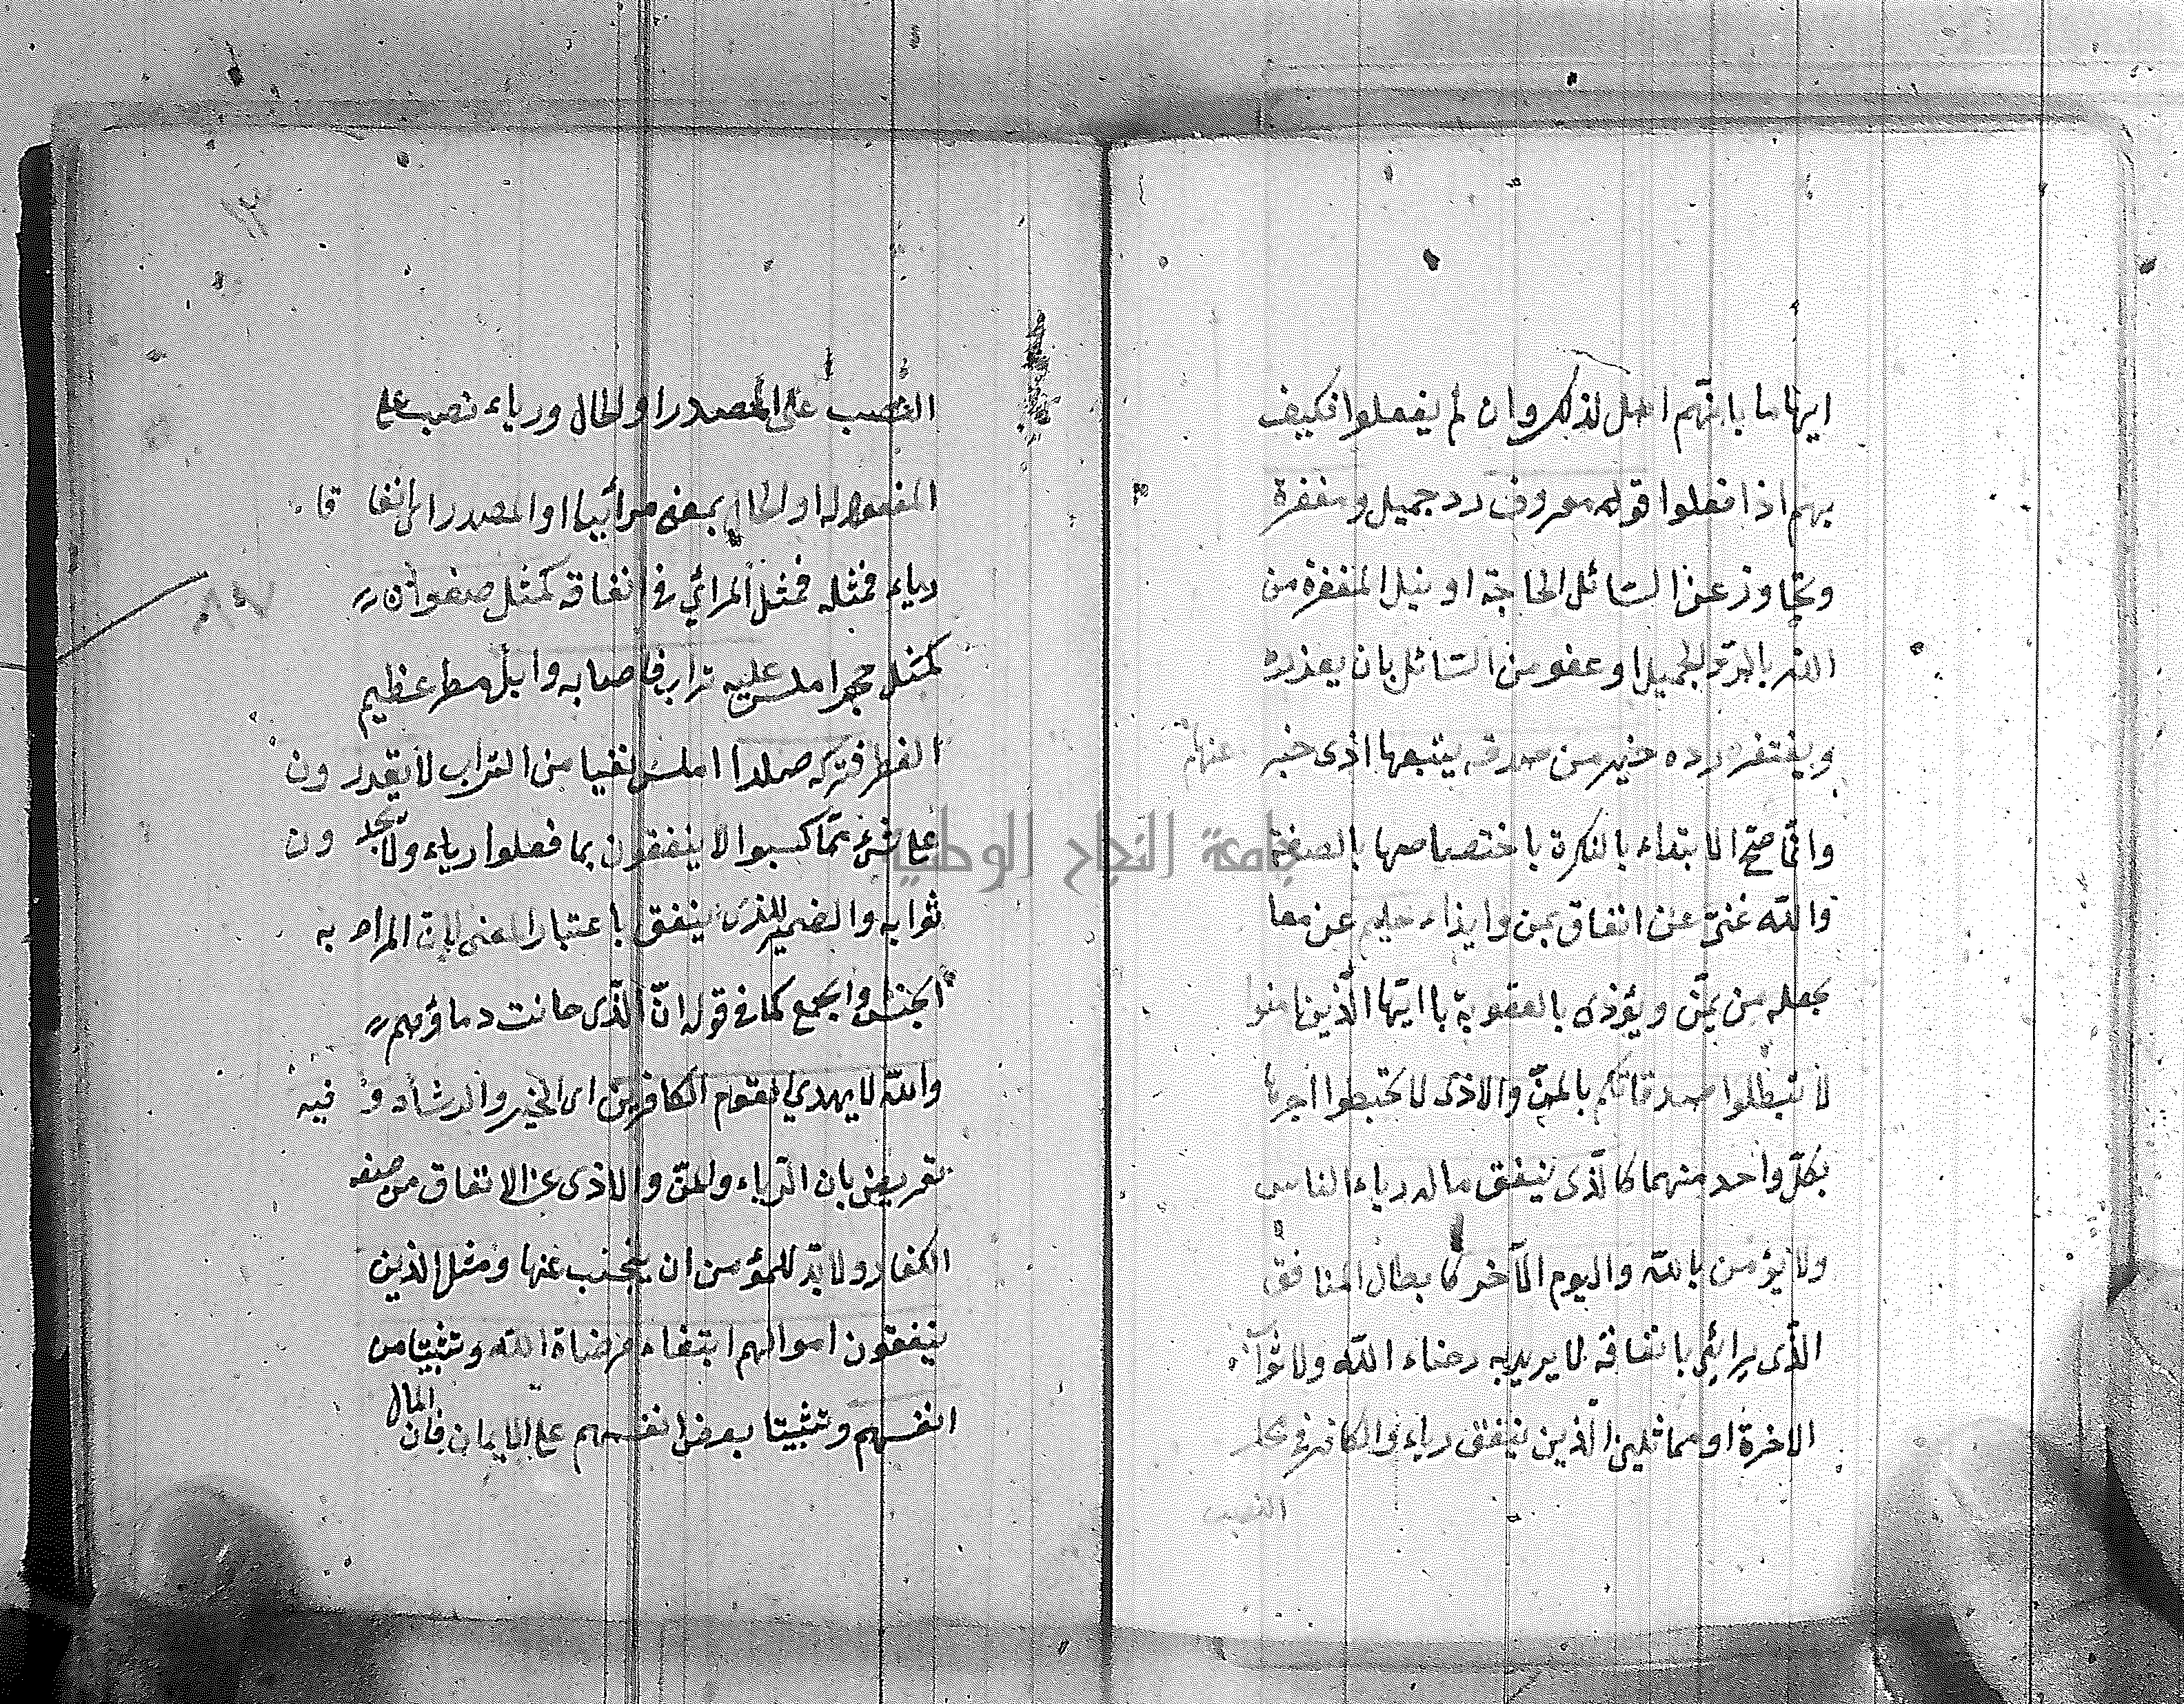 ايهاما بانهم اهل لذلك وان لم يفعلوا فكيف
بهم اذا فعلوا قوله معروف رد جميل ومغفرة
وتجاوز عن السائل الحاجة او نيل المغفرة من
الله بالرد الجميل او عفو من السائل بان يعذره
ويغتفر رده خير من صدقة يتبعها اذى خبر عنهما
وانما صح الابتداء بالنكرة باختصاصها بالصفة
والله غنيّ عن انفاق بمن وايذاء حليم عن معا
بجعله من يمنّ ويؤذى بالعقوبة يا ايّها الّذين امنوا
لا تبطلوا صدقاتكم بالمنّ والاذى لا تحبطوا اجرها
بكلّ واحد منهما كالّذى ينفق ماله رياء الناس
ولا يؤمن بالله واليوم الآخر كابطال المنافق
الّذى يرائي بانفاقه لا يريد به رضاء الله ولا ثواب
الاخرة او مماثلين الّذين ينفق رياء والكاف في محل
النصب
النصب على المصدر او الحال ورياء نصب على
المفعول له او الحال بمعنى مرائيا او المصدر اى انفا قا
رياء فمثله فمثل المرائي في انفاقه كمثل صفوان
كمثل حجر املس عليه تراب فاصابه وابل مطر عظيم
القطر فتركه صلدا املس نقيا من التراب لا يقدر ون
على شئ ممّا كسبوا لا ينفقون بما فعلوا رياء ولا يجد ون
ثوابه والضمير للذى ينفق باعتبار المعنى لان المراد به
الجنس والجمع كما في قوله انّ الّذى حانت دماؤهم
والله لا يهدي القوم الكافرين اى الخير والرشاد و فيه
تعريض بان الرّياء والمنّ والاذى على الانفاق من صفة
الكفار ولا بدّ للمؤمن ان يجتنب عنها ومثل الذين
ينفقون اموالهم ابتغاء مرضاة الله وتثبيتا من
انفسهم وتثبيتا بعض انفسهم على الايمان فان المال
جامعة النجاح الوطنية